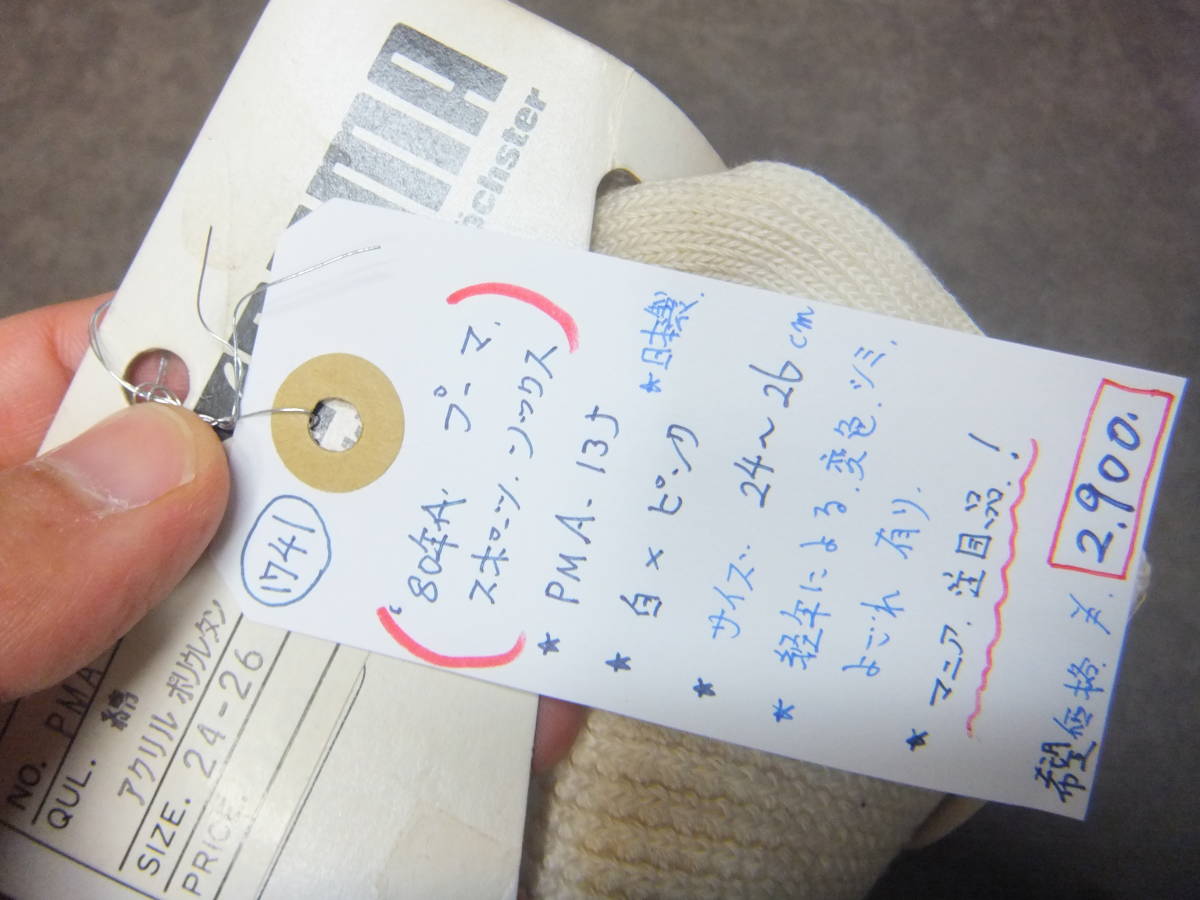 1741
'80年代 プーマ.
スポーツ.ソックス
★ PMA-13J
★日本製.
★ 白×ピンク
★ サイズ. 24〜26cm
★ 経年による.変色.シミ.
よごれ 有り.
★ マニア.注目品.!
希望価格 〆.
2.900.
NO. PMA
QUL. 綿
アクリル ポリウレタン
SIZE. 24-26
PRICE.